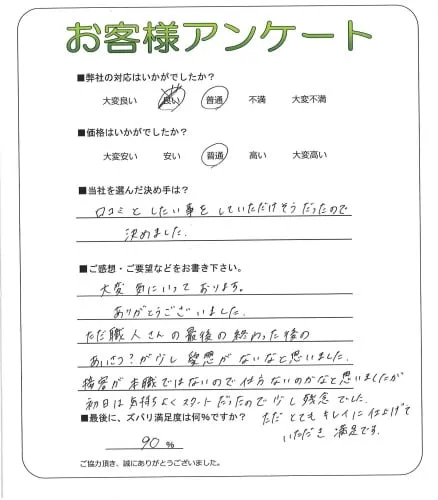 お客様アンケート
■弊社の対応はいかがでしたか?
大変良い 良い 普通 不満 大変不満
■価格はいかがでしたか?
大変安い 安い 普通 高い 大変高い
■当社を選んだ決め手は?
口コミと したい事を していただけそうだったので
決めました.
■ご感想・ご要望などをお書き下さい。
大変 気にいって おります。
ありがとうございました.
ただ職人さんの最後の終わった後の
あいさつ?が少し 愛想が ないなと思いました.
接客が本職ではないので仕方ないのかなと思いましたが
初日は気持ちよくスタートだったので少し残念でした.
■最後に、ズバリ満足度は何%ですか?
ただ とても キレイに仕上げて
いただき 満足です.
90 %
ご協力頂き、誠にありがとうございました。